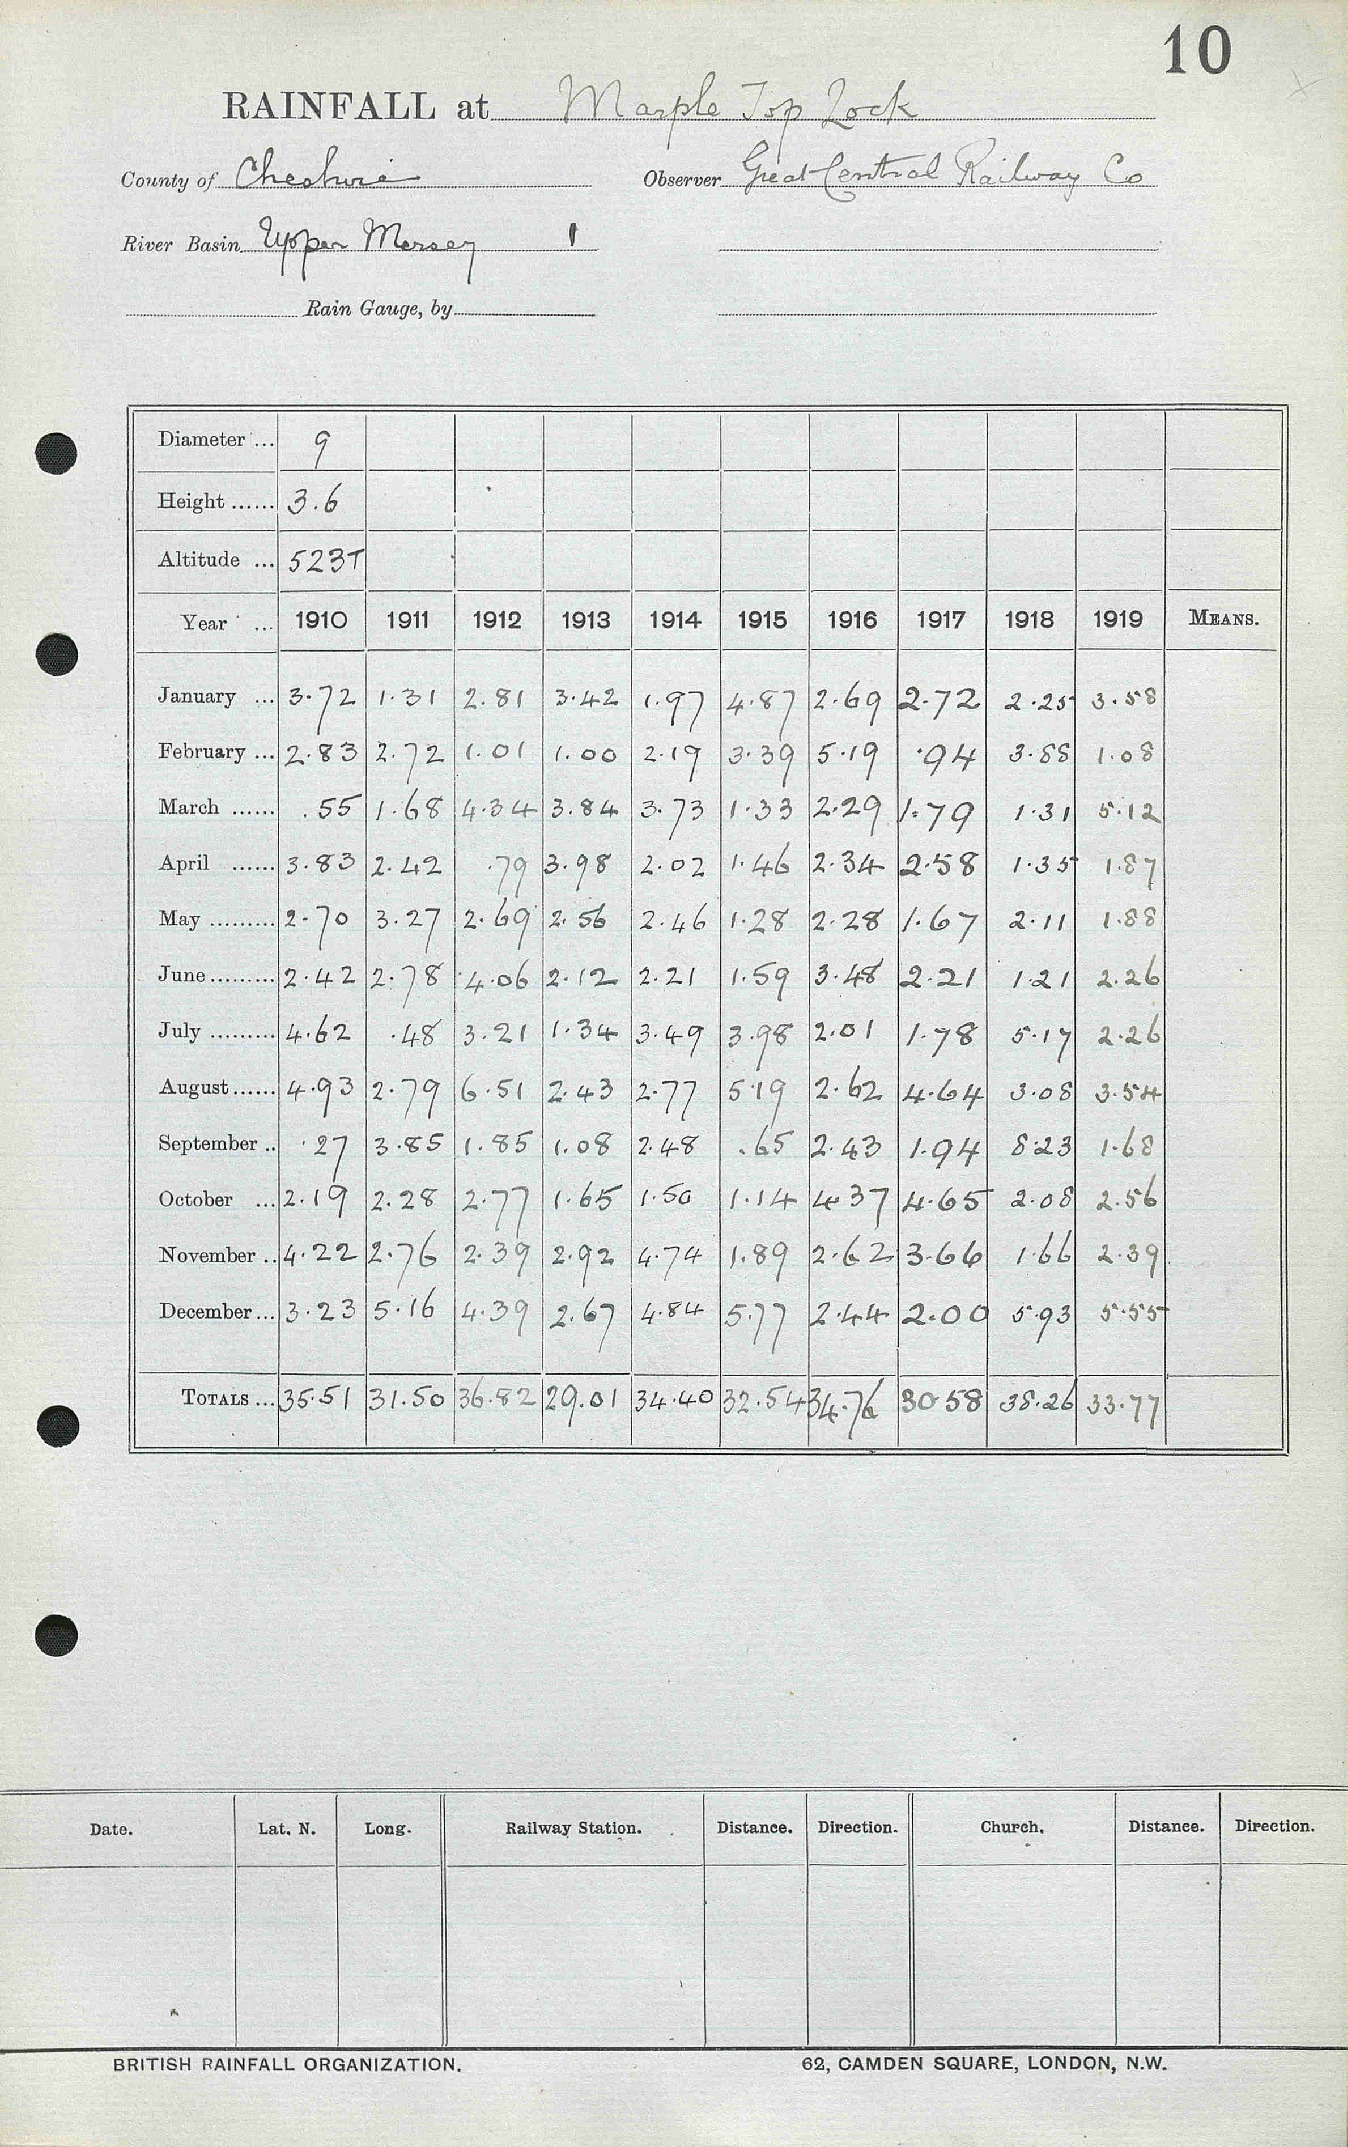 10
RAINFALL at Marple Top Lock
County of Cheshire Observer Great Central Railway Co
River Basin Upper Mersey 1
Rain Gauge, by
Diameter ... 9
Height ...... 3.6
Altitude ... 523T
Year ... 1910 1911 1912 1913 1914 1915 1916 1917 1918 1919 MEANS.
January ... 3.72 1.31 2.81 3.42 1.97 4.87 2.69 2.72 2.25 3.58
February ... 2.83 2.72 1.01 1.00 2.19 3.39 5.19 .94 3.88 1.08
March ...... .55 1.68 4.34 3.84 3.73 1.33 2.29 1.79 1.31 5.12
April ...... 3.83 2.42 .79 3.98 2.02 1.46 2.34 2.58 1.35 1.87
May ......... 2.70 3.27 2.69 2.56 2.46 1.28 2.28 1.67 2.11 1.88
June ......... 2.42 2.78 4.06 2.12 2.21 1.59 3.48 2.21 1.21 2.26
July ......... 4.62 .48 3.21 1.34 3.49 3.98 2.01 1.78 5.17 2.26
August ...... 4.93 2.79 6.51 2.43 2.77 5.19 2.62 4.64 3.08 3.54
September .. .27 3.85 1.85 1.08 2.48 .65 2.43 1.94 8.23 1.68
October ... 2.19 2.28 2.77 1.65 1.50 1.14 4.37 4.65 2.08 2.56
November .. 4.22 2.76 2.39 2.92 4.74 1.89 2.62 3.66 1.66 2.39
December ... 3.23 5.16 4.39 2.67 4.84 5.77 2.44 2.00 5.93 5.55
TOTALS ... 35.51 31.50 36.82 29.01 34.40 32.54 34.76 30.58 38.26 33.77
Date. Lat. N. Long. Railway Station. Distance. Direction. Church. Distance. Direction.
BRITISH RAINFALL ORGANIZATION. 62, CAMDEN SQUARE, LONDON, N.W.